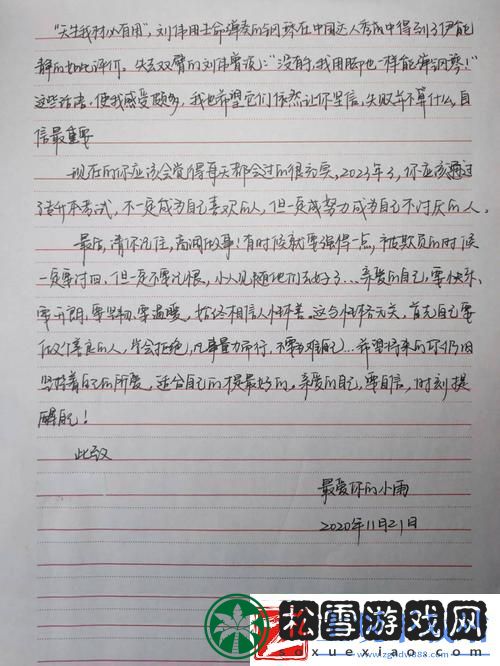 "天生我材必有用"，刘伟用生命弹奏的钢琴在中国达人秀成中得到了伊能
静的如此评价。失去双臂的刘伟曾说："没有手，我用脚也一样能弹钢琴！"
这些话语，使我感受颇多，我也希望它们依然让你坚信，失败并不算什么，自
信最重要
现在的你应该会觉得每天都会过的很充实，2023年了，你应该通过
专升本考试，不一定成为自己喜欢的人，但一定成努力成为自己不讨厌的人。
最后，请你记住，高调做事！有时候就要强得一点，被欺负的时候
一定要讨回，但一定不要记恨，小人见随他们去好了…亲爱的自己，要快乐、
要开朗，要坚韧，要温暖，始终相信人性本善。这与性格无关，首先自己要
做个善良的人，学会拒绝，凡事量力而行，不要为难自己…希望将来的你仍旧
坚持着自己的所爱，适合自己的才是最好的。亲爱的自己，要自信，时刻提
醒自己！
此致
最爱你的小雨
2020年11月21日
松雪游戏网
soxuexiao.com
www.zgzhdw888.com